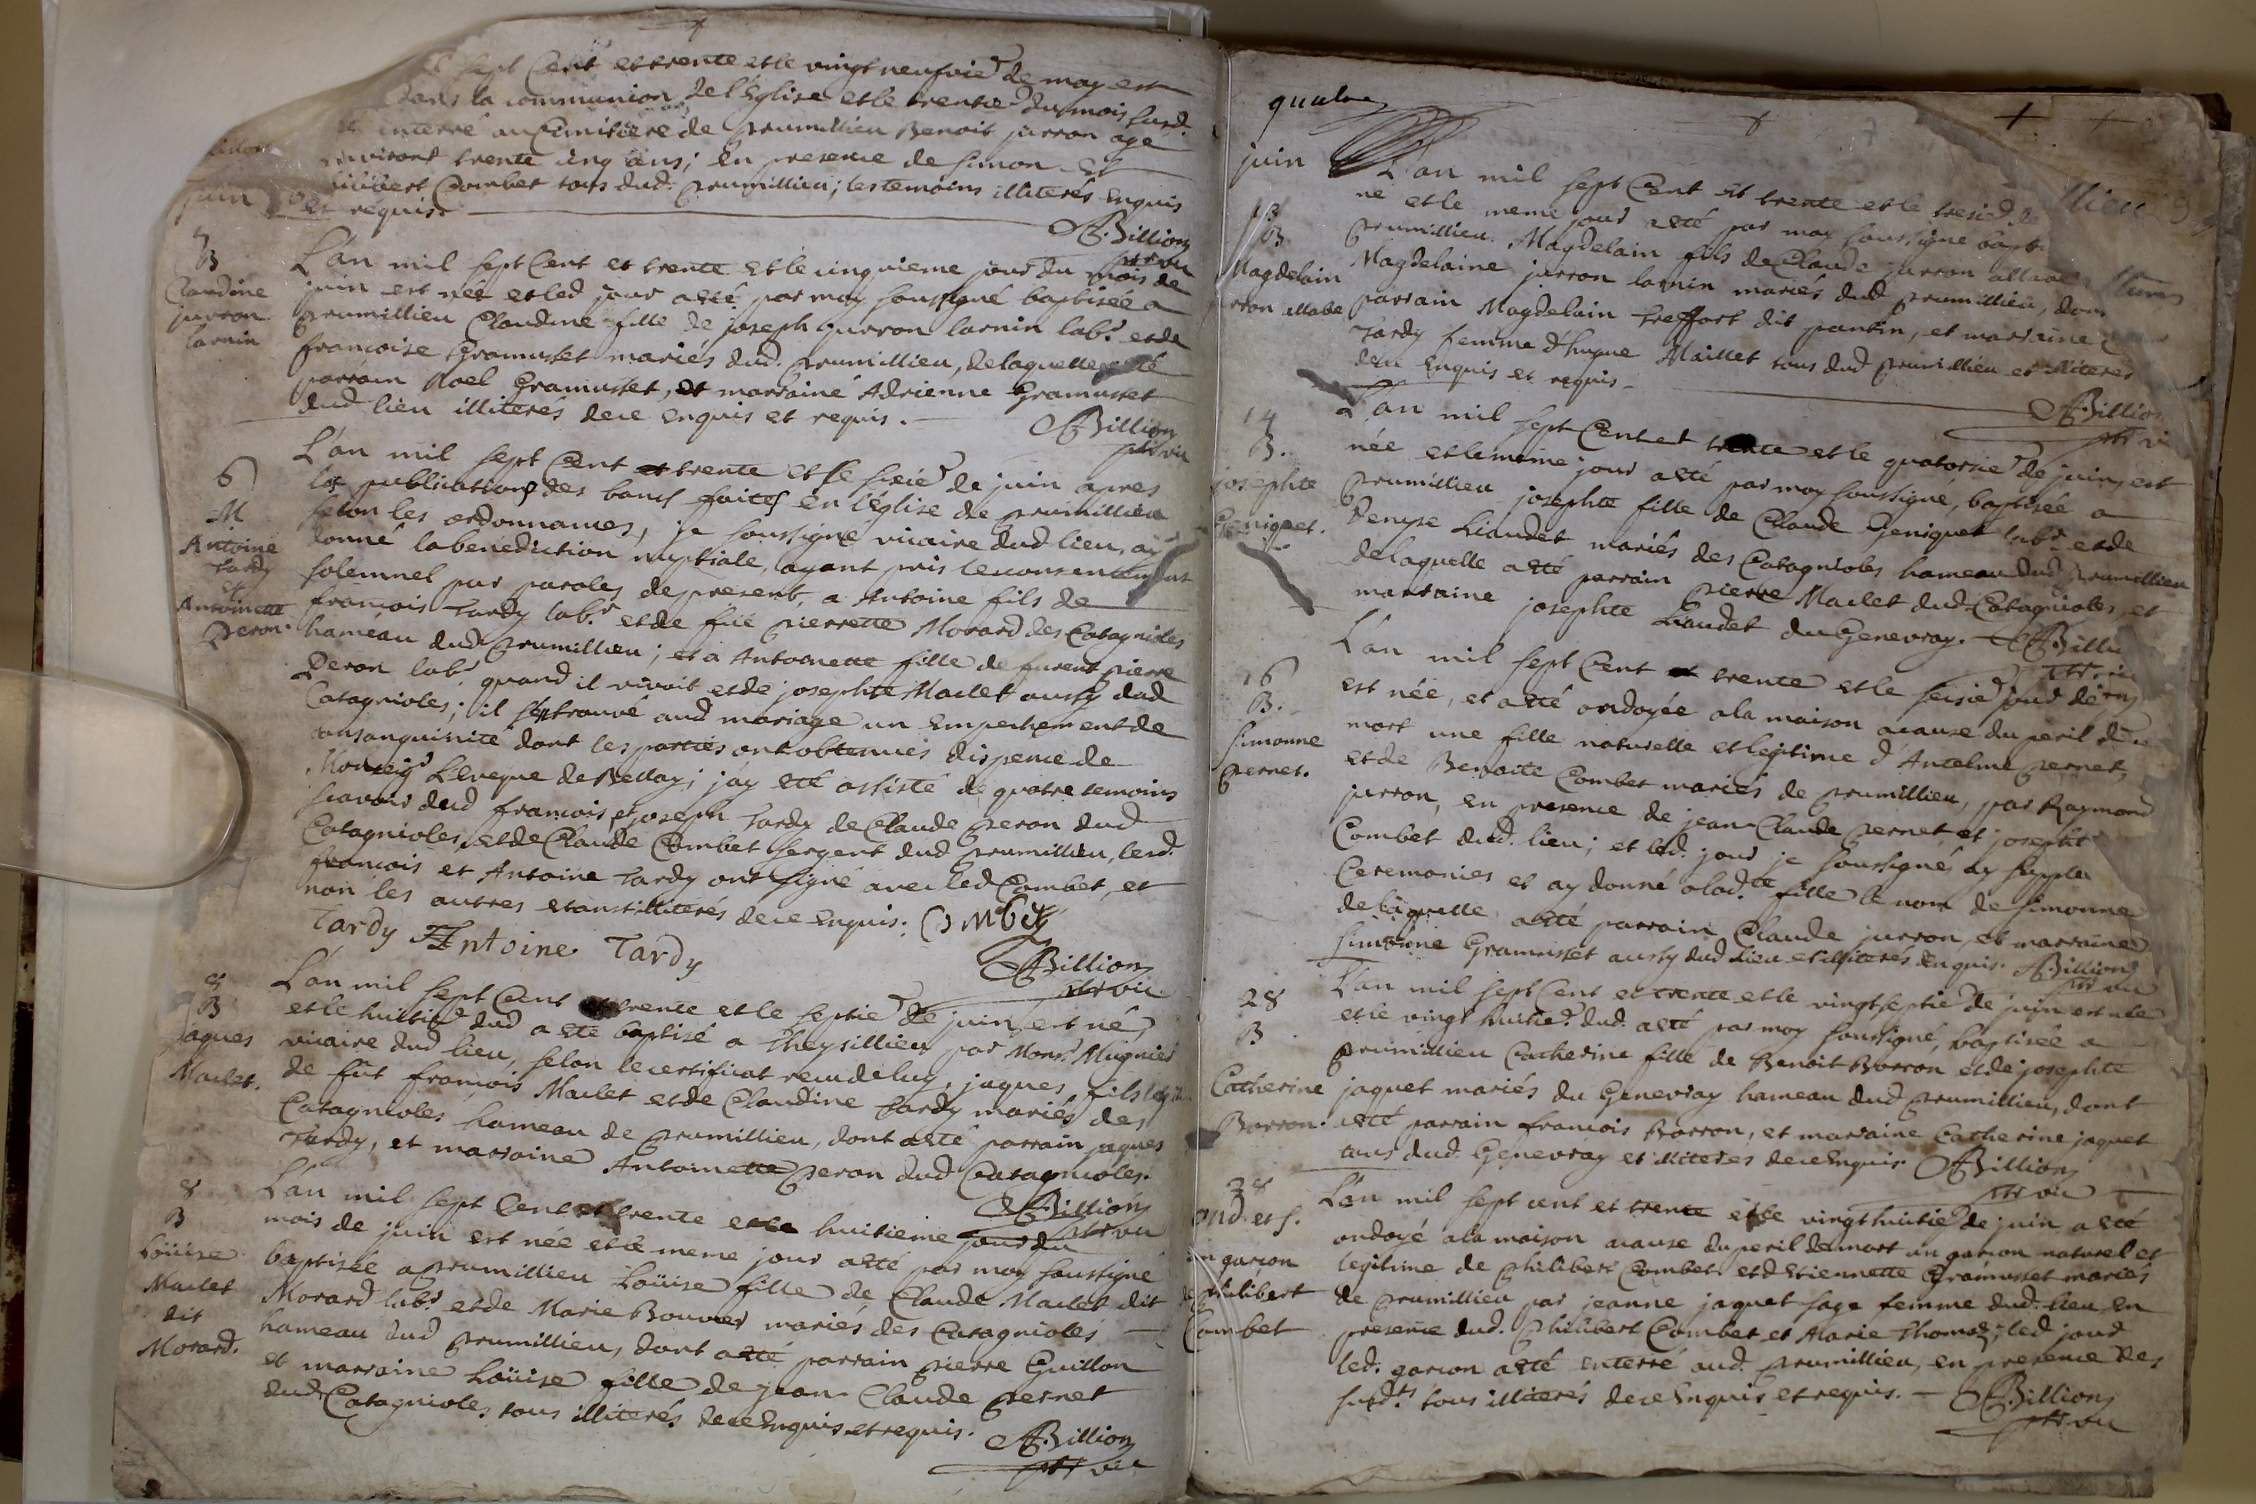 sept Cent et trente et le vingt neufvie de may est
dans la communion de l'Eglise et le trentie du mois susd.
enterré au Cimitiere de prumillieu Benoit jurron agé
environt trente cinq ans; En presence de simon et
Combet tous dud. prumillieu; les temoins illiterés Enquis
et requis.
Billion
ptr vic
juin
5
B
Claudine
jurron
larnin
L'an mil sept Cent et trente et le cinquieme jour du mois de
juin est née et led jour a eté par moy soussigné baptisée a
prumillieu Claudine fille de joseph jurron larnin labr. et de
francoise Gramusset mariés dud. prumillieu, de laquelle a eté
parrain Noel Gramusset, et marraine Adrienne Gramusset
dud lieu illiterés de ce Enquis et requis.
Billion
ptr vic
6
M
Antoine
Tardy
et
Antoinette
Peron
L'an mil sept Cent et trente et le sixie de juin apres
les publications des bancs faites en l'église de prumillieu
selon les ordonnances, je soussigné vicaire dud lieu, ay
donné la benediction nuptiale, ayant pris le consentement
solemnel par paroles de present, a Antoine fils de
francois Tardy labr. et de füe pierrette Morard des Catagnioles
hameau dud prumillieu; et a Antoinette fille de furent pierre
Peron labr quand il vivoit et de josephte Maclet aussy dud
Catagnioles; il s'est trouvé aud mariage un Empechement de
consanguinité dont les parties ont obtenues dispence de
Monseigr L'Eveque de Bellay; j'ay eté assisté de quatre temoins
scavoir dud francois, et joseph Tardy de Claude Peron dud
Catagnioles, et de Claude Combet sergent dud prumillieu, lesd.
francois et Antoine Tardy ont signé avec led Combet, et
non les autres etants illiterés de ce Enquis. Combet
Tardy Antoine Tardy
Billion
ptr vic
8
B
jaques
Maclet.
L'an mil sept Cent et trente et le septie de juin, est né,
et le huitie dud a eté baptisé a Theysillieu par Monsr Mugnier
vicaire dud lieu, selon le certificat receu de luy, jaques, fils
de füt francois Maclet et de Claudine Tardy mariés des
Catagnioles hameau de prumillieu, dont a eté parrain jaques
Tardy, et marraine Antoinette Peron dud Catagnioles.
Billion
ptr vic
8
B
Loüise
Maclet
dit
Morard.
L'an mil sept Cent et trente et le huitieme jour du
mois de juin est née et le meme jour a eté par moy soussigné
baptisée a prumillieu Loüise fille de Claude Maclet dit
Morard labr et de Marie Bouvier mariés des Catagnioles
hameau dud prumillieu, dont a eté parrain pierre Guillon
et marraine Loüise fille de jean Claude Pernet
dud Catagnioles, tous illiterés de ce Enquis et requis.
Billion
ptr vic
quatre
juin
13
B
Magdelain
L'an mil sept Cent et trente et le tresie de
né et le meme jour a eté par moy soussigné bapti
prumillieu Magdelain fils de Claude jurron
Magdelaine jurron larnin mariés dud prumillieu, dont
parrain Magdelain treffort dit pantin, et marraine
Tardy femme d'hugue Maillet tous dud prumillieu et illiterés
de ce Enquis et requis
Billion
14
B.
josephte
Geniquet.
L'an mil sept Cent et trente et le quatorsie de juin, est
née et le meme jour a eté par moy soussigné, baptisée a
prumillieu josephte fille de Claude Geniquet labr. et de
Denyse Liaudet mariés des Catagnioles hameau dud prumillieu
de laquelle a eté parrain pierre Maclet dud Catagnioles, et
marraine josephte Liaudet du Genevray.
16
B.
simonne
Pernet.
L'an mil sept Cent et trente et le seisie jour de
est née, et a eté ondoyée a la maison a cause du peril de
mort une fille naturelle et legitime d'Antelme Pernet,
et de Benoite Combet mariés de prumillieu, par Raymond
jurron, En presence de jean-Claude Pernet et josephte
Combet dud. lieu; et led. jour je soussigné ay supplée
Ceremonies et ay donné a lad.te fille le nom de simonne
de laquelle a eté parrain Claude jurron, et marraine
simonne Gramusset aussy dud lieu et illiterés Enquis. Billion
ptr vic
28
B
Catherine
Borron.
L'an mil sept Cent et trente et le vingt septie de juin est née
et le vingt huitie. dud. a eté par moy soussigné, baptisée a
prumillieu Catherine fille de Benoit Borron et de josephte
jaquet mariés du Genevray hameau dud prumillieu, dont
a eté parrain francois Borron, et marraine Catherine jaquet
tous dud Genevray et illiterés de ce Enquis. Billion
ptr vic
28
ond. et s.
un garcon
philibert
Combet
L'an mil sept cent et trente et le vingt huitie de juin a eté
ondoyé a la maison a cause du peril de mort un garcon naturel et
legitime de philibert Combet et d'Etiennette Gramusset mariés
de prumillieu par jeanne jaquet sage femme dud. lieu En
presence dud. philibert Combet et Marie Thomas; led jour
led. garcon a eté enterré aud. prumillieu, en presence des
susd.ts tous illiterés de ce Enquis et requis. Billion
ptr vic